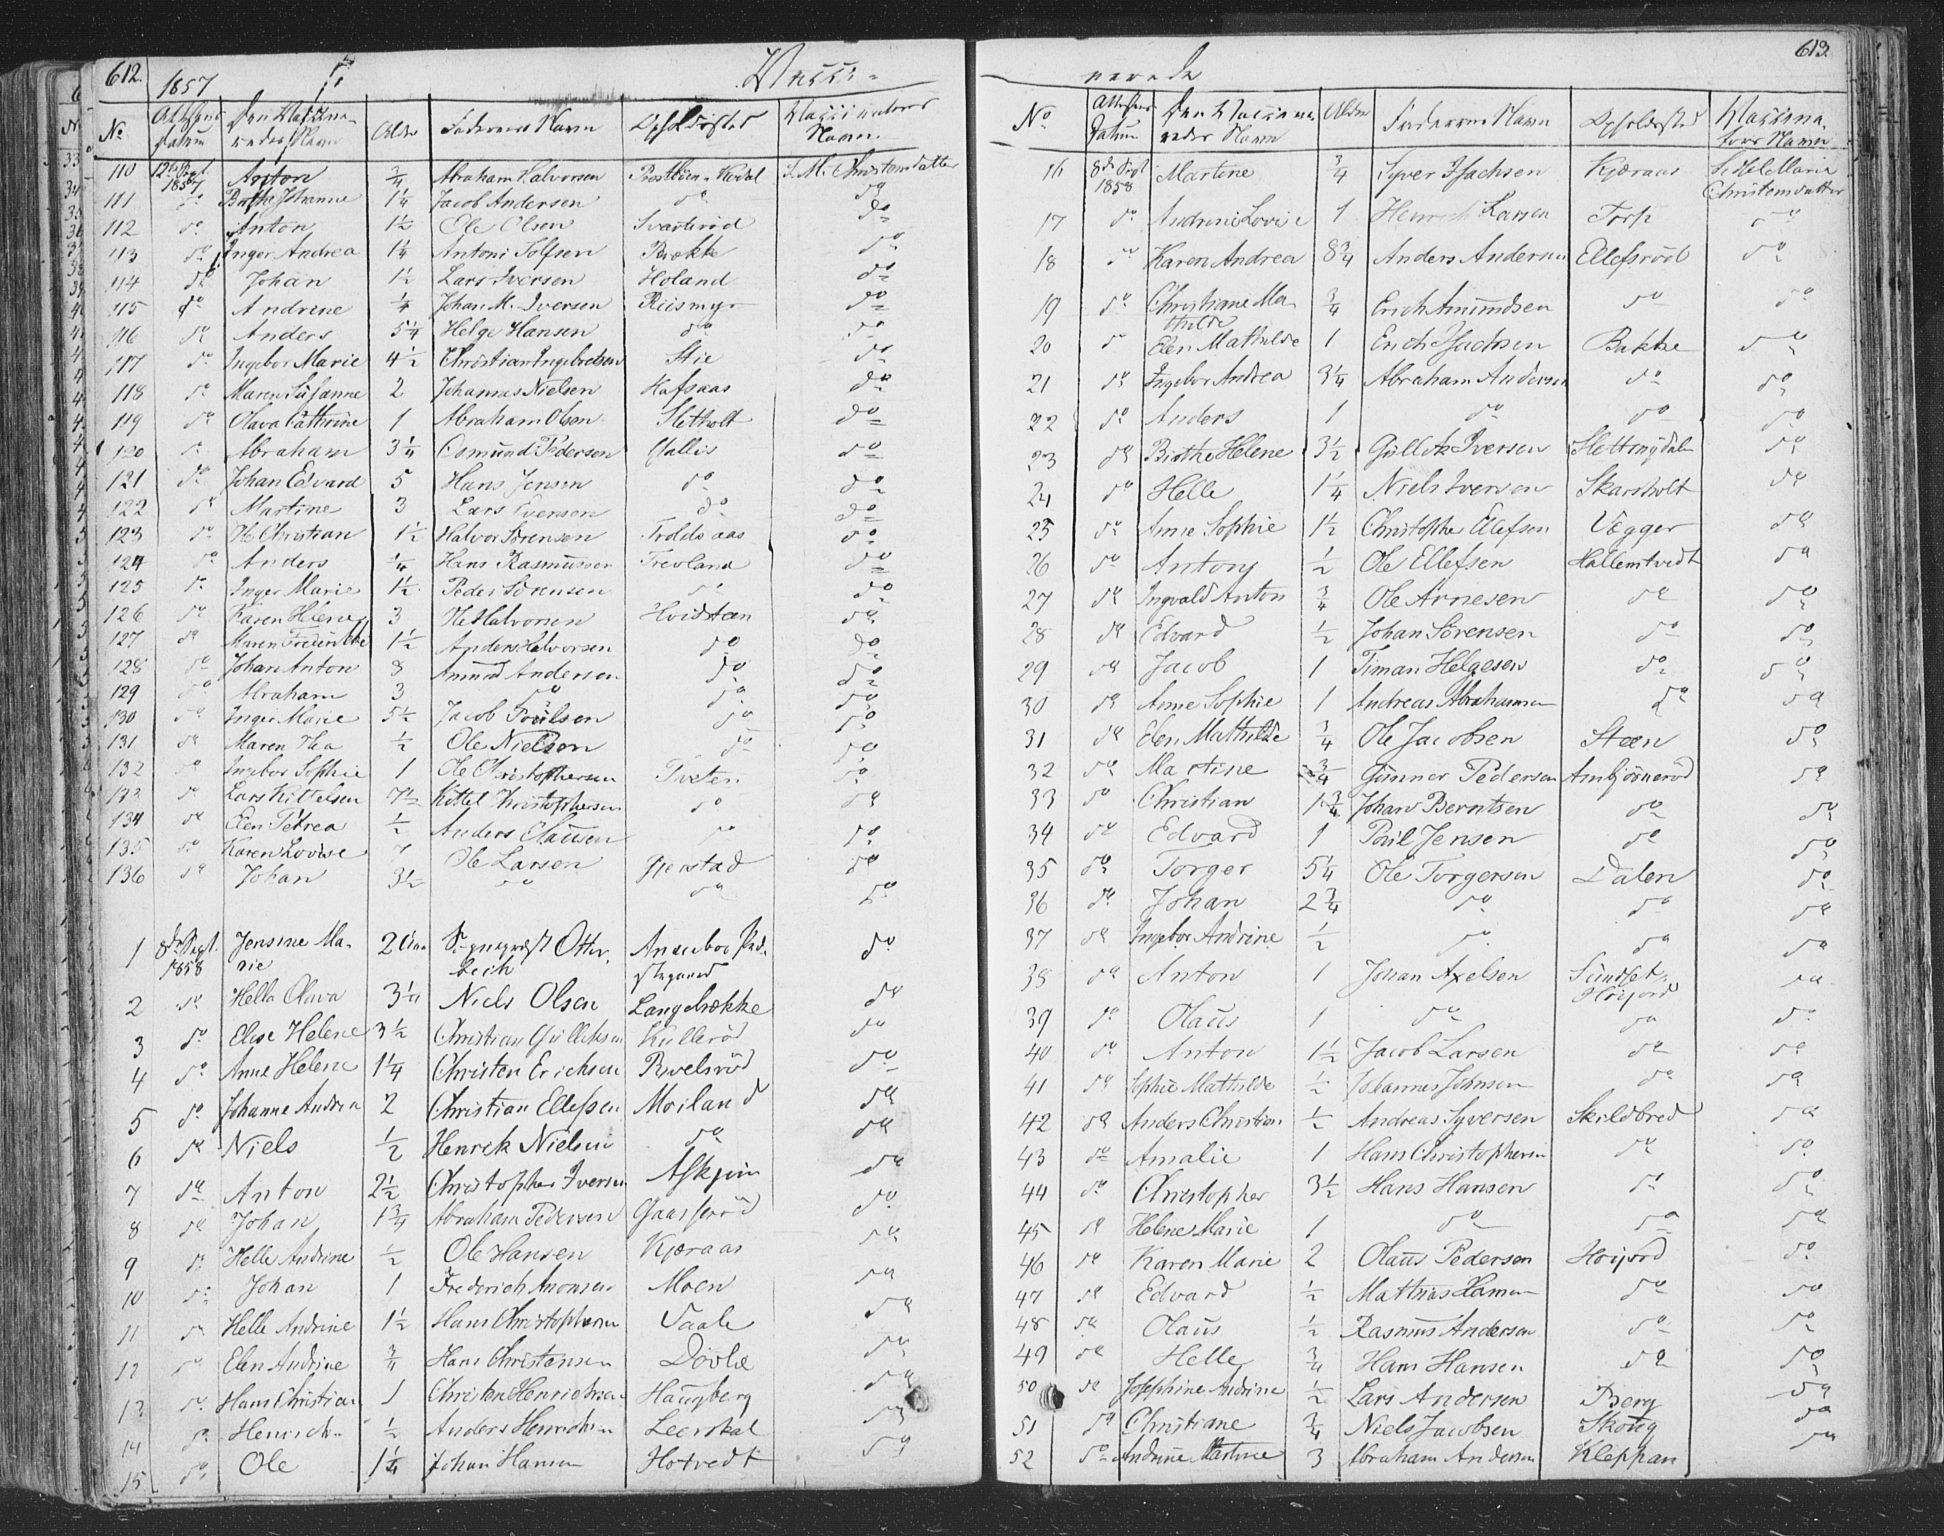 612.
1857
Vacci-
No
Attestens Datum
Den Vaccineredes Navn
Alder
Faderens Navn
Opholdssted
Vaccinators Navn.
110 12te Sept. 1857 Anton 3/4 Abraham Halvorsen S. M. Christensdatter
111 do Johanne 1 1/4 Jacob Andersen do do
112 do Anton 1 1/2 Ole Olsen Svartsrød do
113 do Inger Andrea 1 1/4 Antoni Tolfsen Brække do
114 do Johan 1 1/2 Lars Iversen Holand do
115 do Andrine 1/4 Johan M. Iversen Riismyr do
116 do Anders 5 1/4 Helge Hansen do do
117 do Ingebor Marie 4 1/2 Christian Ingebretsen Stie do
118 do Maren Susanne 2 Johannes Nielsen Hafsaas do
119 do Olava Cathrine 1 Abraham Olsen Sletholt do
120 do Abraham 3 1/4 Osmund Pedersen Gallis do
121 do Johan Edvard 5 Hans Jensen do do
122 do Martine 3 Lars Iversen do do
123 do Ole Christian 1 1/2 Halvor Sørensen Troldsaas do
124 do Anders 1/4 Hans Rasmussen Trevland do
125 do Inger Marie 1 1/2 Peder Sørensen do do
126 do Karen Helene 3 Ole Halvorsen Hvidsteen do
127 do Maren 1 1/2 Anders Halvorsen do do
128 do Johan Anton 8 Amund Andersen do do
129 do Abraham 3 do do do
130 do Inger Marie 5 1/2 Jacob Poulsen do do
131 do Maren Thea 1/2 Ole Nielsen do do
132 do Ingebor Sophie 1 Ole Christophersen Tveten do
133 do Lars Kittelsen 7 1/2 Kittel Christophersen do do
134 do Elen Petrea 1/2 Anders Clausen do do
135 do Karen Lovise 7 Ole Larsen Gjerstad do
136 do Johan 3 1/2 do do do
1 8de Sept. 1858 Jensine Marie 2 Otterbech do
2 do Helle Olava 3 1/4 Niels Olsen Langebrække do
3 do Elise Helene 3 1/2 Christian Gulliksen Kullerød do
4 do Anne Helene 1 1/4 Christen Erichsen do
5 do Johanne Andrea 2 Christian Ellefsen Moiland do
6 do Niels 1/2 Henrek Nielsen do do
7 do Anton 2 1/2 Christopher Iversen Askjem do
8 do Johan 1 3/4 Abraham Pedersen Gaasserød do
9 do Helle Andrine 1/2 Ole Hansen Kjæraas do
10 do Johan 1 Frederich Moen do
11 do Helle Andrine 1 1/2 Hans Christophersen do
12 do Elen Andrine 3/4 Hans Christensen Døvle do
13 do Hans Christian 1 Christen Henrichsen Haugberg do
14 do Henrich 1/2 Anders Henrichsen Leerskal do
15 do Ole 1 1/4 Johan Hansen Hotvedt do
613.
nerede
No
Attestens Datum
Den Vaccineredes Navn
Alder
Faderens Navn
Opholdssted
Vaccinators Navn
16 8de Sept 1858 Martine 3/4 Syver Isachsen Kjæraas Sibille Marie Christensdatter
17 do Andrine Lovise 1 Henrich Larsen Torp do
18 do Karen Andrea 8 3/4 Anders Andersen Ellefsrød do
19 do Christiane Mathilde 3/4 Erich Amundsen do do
20 do Elen Mathilde 1 Erich Isachsen Bakke do
21 do Ingebor Andrea 3 1/4 Abraham Andersen do do
22 do Anders 1 do do do
23 do Birthe Helene 3 1/2 Gullik Iversen do
24 do Helle 1 1/4 Niels Iversen Skarsholt do
25 do Anne Sophie 1 1/2 Christopher Ellefsen Vegger do
26 do Antony 1/2 Ole Ellefsen Hallenstvedt do
27 do Ingvald Anton 3/4 Ole Arnesen do do
28 do Edvard 1/2 Johan Sørensen do do
29 do Jacob 1 Timan Helgesen do do
30 do Anne Sophie 1 Andreas Abrahamsen do do
31 do Elen Mathilde 3/4 Ole Jacobsen Steen do
32 do Martine 3/4 Gunner Pedersen Ambjørnerød do
33 do Christian 1 3/4 Johan Berntsen do do
34 do Edvard 1 Poul Jensen do do
35 do Torger 5 1/4 Ole Torgersen Dalen do
36 do Johan 2 3/4 do do do
37 do Ingebor Andrine 1/2 do do do
38 do Anton 1 Johan Axelsen Sundset Høijord do
39 do Olaus 1 do do do
40 do Anton 1 1/2 Jacob Larsen do do
41 do Sophie Mathilde 1/2 Johannes Johnsen do do
42 do Anders Christian 1/2 Andreas Syversen Skildbred do
43 do Amalie 1 Hans Christophersen do do
44 do Christopher 3 1/2 Hans Hansen do do
45 do Helene Marie 1 do do do
46 do Karen Marie 2 Olaus Pedersen Hoijord do
47 do Edvard 1/2 Mathias Hansen do do
48 do Olaus 1/2 Rasmus Andersen do do
49 do Helle 3/4 Hans Hansen do do
50 do Josephine Andrine 1/2 Lars Andersen Berg do
51 do Christiane 3/4 Niels Jacobsen Skoug do
52 do Andrine Martine 3 Abraham Andersen Kleppan do